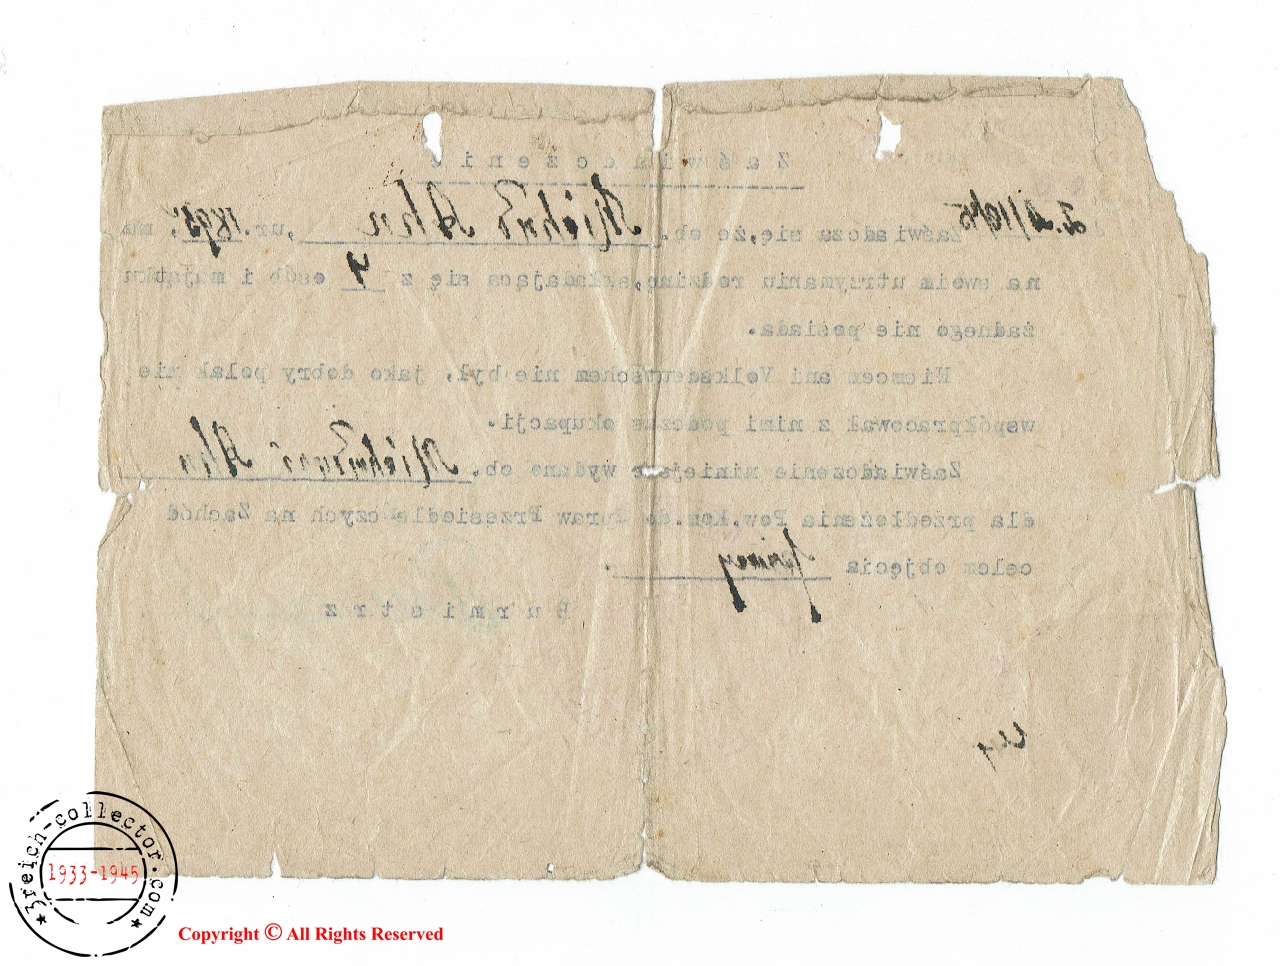 Zaświadczenie
Zaświadcza się, że ob. ur. 1895, ma
na swoim utrzymaniu rodzinę, składająca się z 4 osób i majątku
żadnego nie posiada.
Niemcem ani Volksdeutschem nie był, jako dobry polak nie
współpracował z nimi podczas okupacji.
Zaświadczenie niniejsze wydane ob.
dla przedłożenia Pow. Kom. do Spraw Przesiedleńczych na Zachód
celem objęcia .
Burmistrz
3reich-collector.com
1933-1945
Copyright © All Rights Reserved